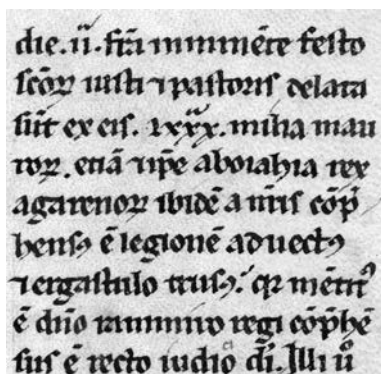 die. ii. fr̄a imminēte festo
sc̄oꝝ iusti ⁊ pastoris delata
sūt ex eis. lxxx. milia mau
roꝝ. etiā ⁊ ip̄e aboiahia rex
agarenoꝝ ibidē a nr̄is cōp̄
hensꝰ ē legionē aduectꝰ
⁊ ergastulo trusꝰ. qꝛ mēti
ē dn̄o ranimiro regi cōp̄hē
sus ē recto iudi͗o dī. Illi ū